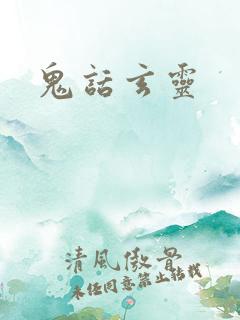 鬼話玄靈
清風傲骨
未經同意禁止轉載